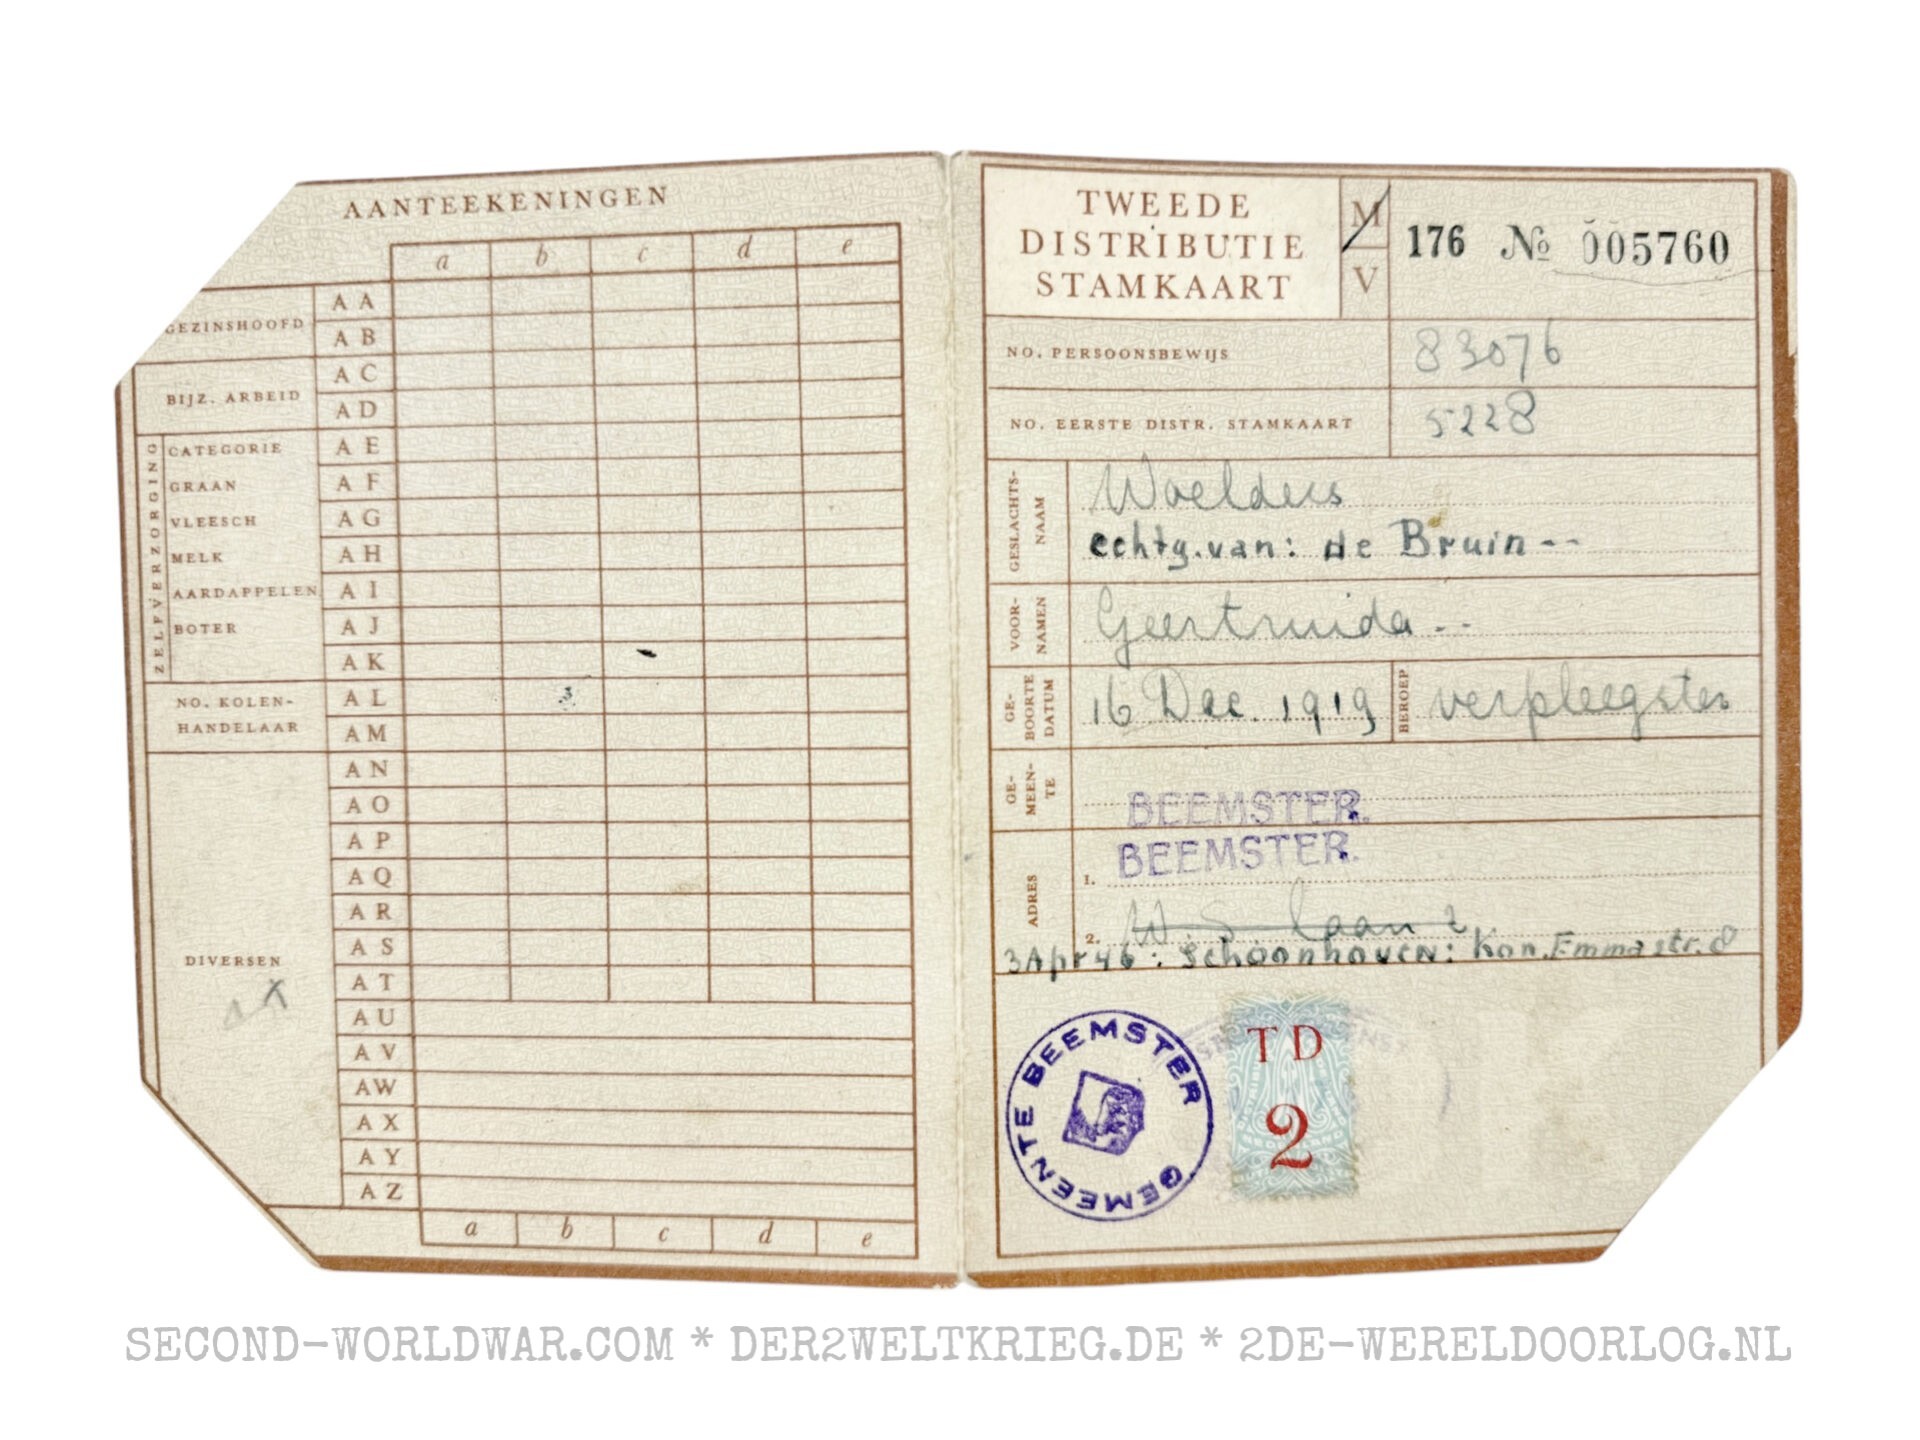 AANTEEKENINGEN
a b c d e
GEZINSHOOFD
AA
AB
BIJZ. ARBEID
AC
AD
ZELFVERZORGING
CATEGORIE AE
GRAAN AF
VLEESCH AG
MELK AH
AARDAPPELEN AI
BOTER AJ
AK
NO. KOLEN-
HANDELAAR
AL
AM
AN
AO
AP
AQ
AR
AS
DIVERSEN
AT
AU
AV
AW
AX
AY
AZ
a b c d e
TWEEDE
DISTRIBUTIE
STAMKAART
M
V
176 № 005760
NO. PERSOONSBEWIJS 83076
NO. EERSTE DISTR. STAMKAART 5228
GESLACHTS-
NAAM
Woelders
echtg.van: de Bruin--
VOOR-
NAMEN
Geertruida--
GE-
BOORTE
DATUM
16 Dec. 1919
BEROEP
verpleegster
GE-
MEEN-
TE
BEEMSTER.
ADRES
1. BEEMSTER.
2. W. S. laan 2
3Apr46: Schoonhoven: Kon.Emmastr.8
GEMEENTE BEEMSTER
TD
2
SECOND-WORLDWAR.COM * DER2WELTKRIEG.DE * 2DE-WERELDOORLOG.NL